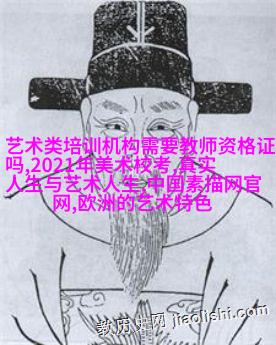 艺术类培训机构需要教师资格证
吗,2021年美术校考,真实
人生与艺术人生,中国素描网官
网,欧洲的艺术特色
教历史网 jiaolishi.com